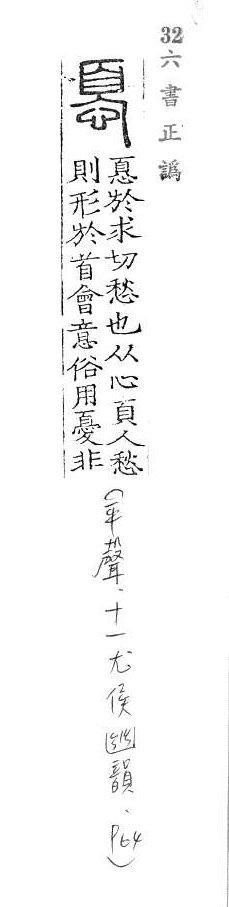 32六書正譌
㥑
㥑於求切愁也从心頁人愁
則形於首會意俗用憂非
(平聲、十一尤侯幽韻、P64)